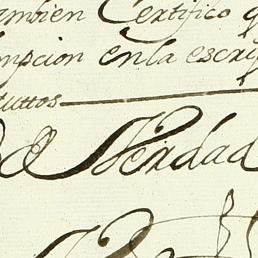 ambien Certifico q
mpcion en la escrip
tuttos
de Verdad